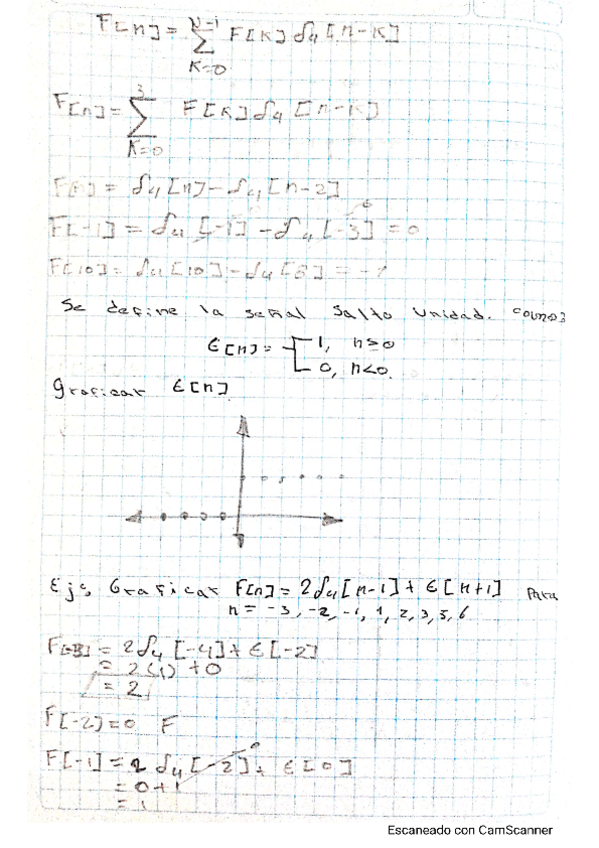 F[n] = N-1 ∑ K=0 F[K] δ4 [n-K]
F[n] = 3 ∑ K=0 F[K] δ4 [n-K]
= δ4 [n] - δ4 [n-2]
F[-1] = δ4 [-1] - δ4 [-3] = 0
F[10] = δ4 [10] - δ4 [8] = -1
Se define la señal Salto Unidad. como:
ϵ[n] = { 1, n≥0
0, n<0.
Graficar ϵ[n]
Ejs Graficar F[n] = 2δ4[n-1] + ϵ[n+1] Para
n = -3, -2, -1, 1, 2, 3, 5, 6
F[-3] = 2δ4 [-4] + ϵ[-2]
= 2(1) + 0
= 2
F[-2] = 0 F
F[-1] = 2 δ4 [-2] + ϵ[0]
= 0+1
= 1
Escaneado con CamScanner